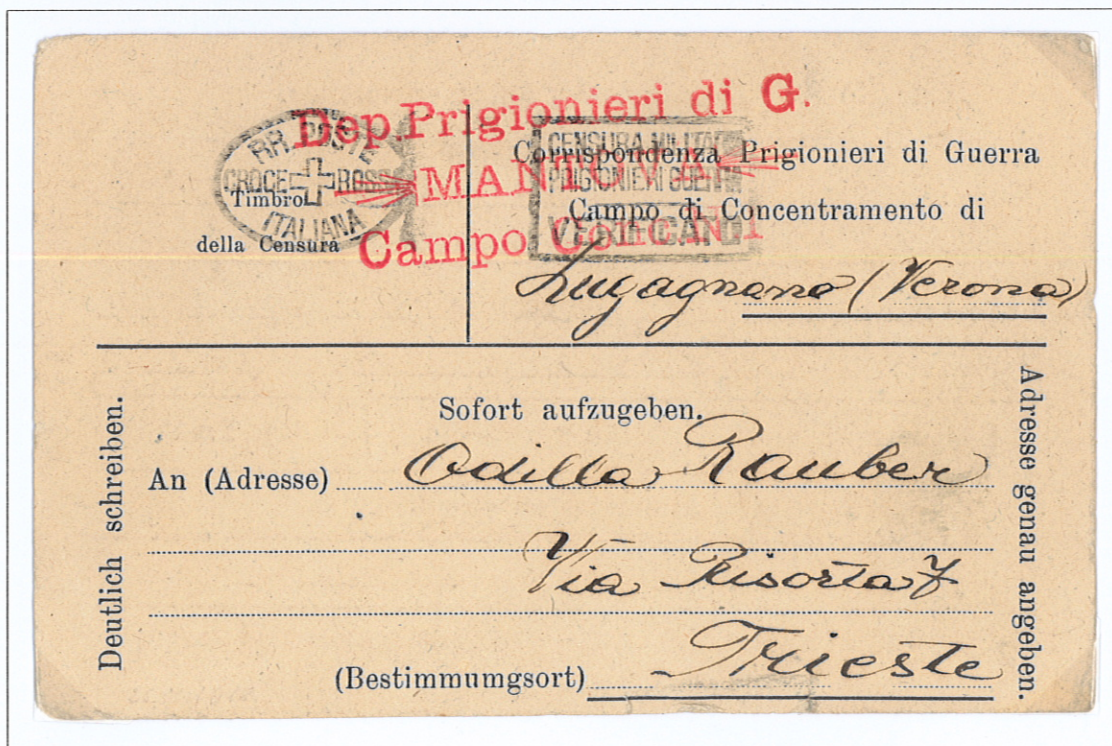 Dep. Prigionieri di G.
MANTOVA
Campo
RR. POSTE
CROCE ROSSA
ITALIANA
Timbro
della Censura
CENSURA MILITARE
PRIGIONIERI GUERRA
Corrispondenza Prigionieri di Guerra
Campo di Concentramento di
Lugagnano (Verona)
Sofort aufzugeben.
An (Adresse) Odilla Rauber
Via Risorta 7
(Bestimmumgsort) Trieste
Deutlich schreiben.
Adresse genau angeben.